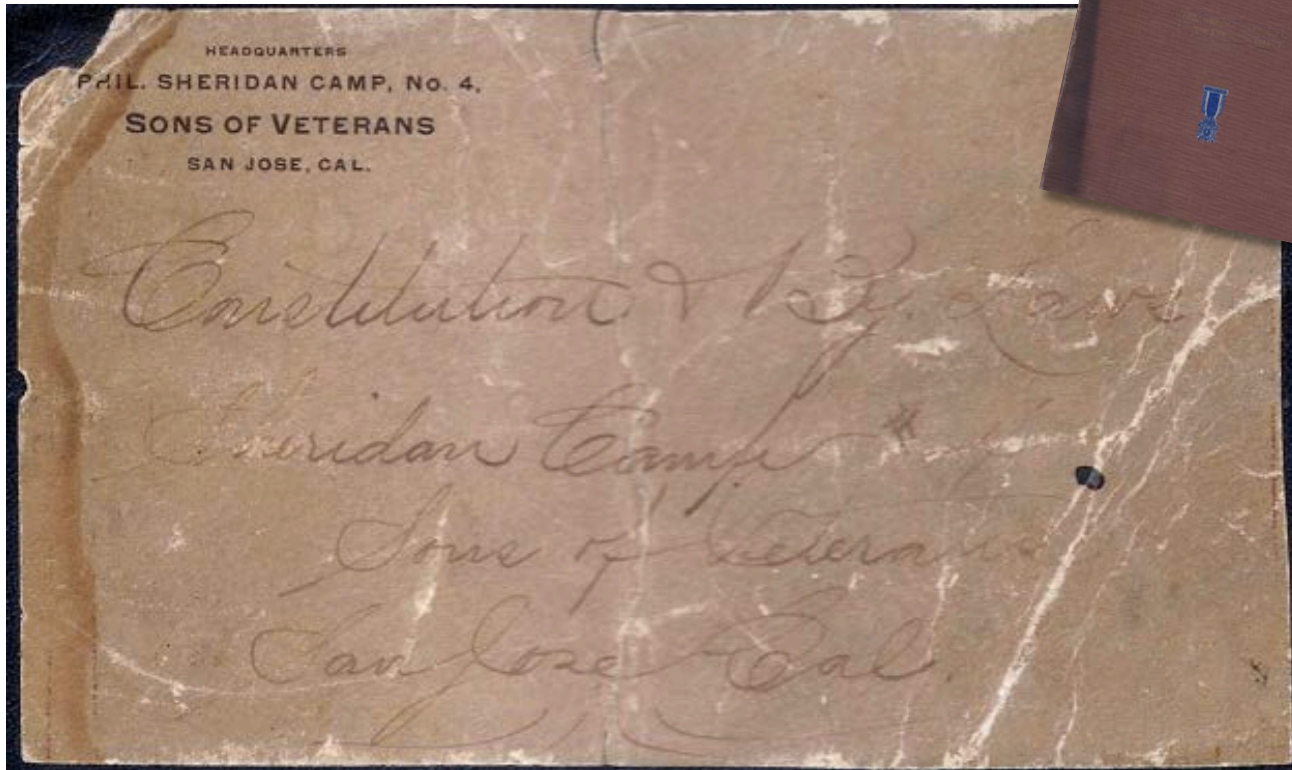 HEADQUARTERS
PHIL. SHERIDAN CAMP, No. 4,
SONS OF VETERANS
SAN JOSE, CAL.
Constitution & By. Laws
Sheridan Camp #
Sons of Veterans
San Jose Cal.